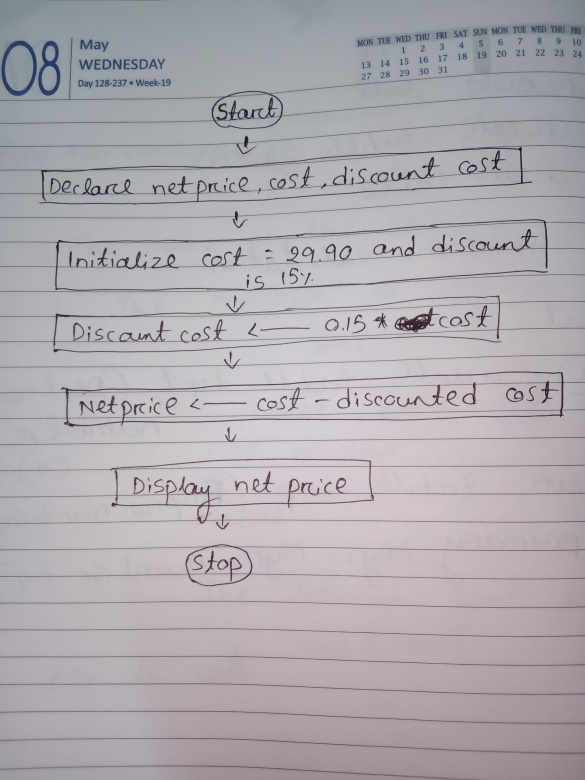 08
May
WEDNESDAY
Day 128-237 • Week-19
MON TUE WED THU FRI SAT SUN MON TUE WED THU FRI
1 2 3 4 5 6 7 8 9 10
13 14 15 16 17 18 19 20 21 22 23 24
27 28 29 30 31
Start
Declare net price, cost, discount cost
Initialize cost = 29.90 and discount
is 15%
Discount cost <— 0.15 * cost
Net price <— cost - discounted cost
Display net price
Stop